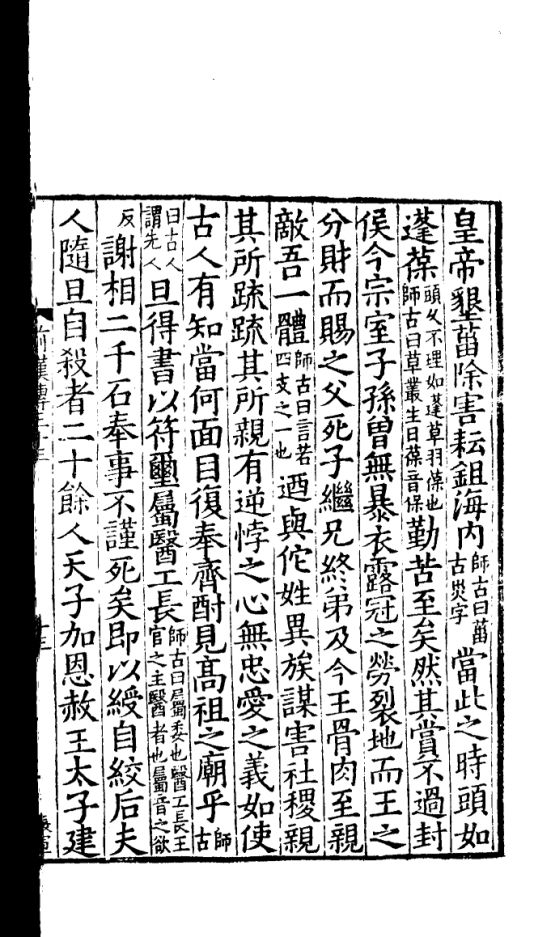 皇帝墾菑除害耘鉏海内師古曰菑古災字當此之時頭如
蓬葆頭久不理如蓬草羽葆也師古曰草叢生曰葆音保勤苦至矣然其賞不過封
侯今宗室子孫曾無暴衣露冠之勞裂地而王之
分財而賜之父死子繼兄終弟及今王骨肉至親
敵吾一體師古曰言若四支之一也迺與佗姓異族謀害社稷親
其所疏疏其所親有逆悖之心無忠愛之義如使
古人有知當何面目復奉齊酎見高祖之廟乎師古
曰古人謂先人旦得書以符璽屬醫工長師古曰屬委也醫工長王官之主醫者也屬音之欲
反謝相二千石奉事不謹死矣即以綬自絞后夫
人隨旦自殺者二十餘人天子加恩赦王太子建
前漢傳三十三
十三